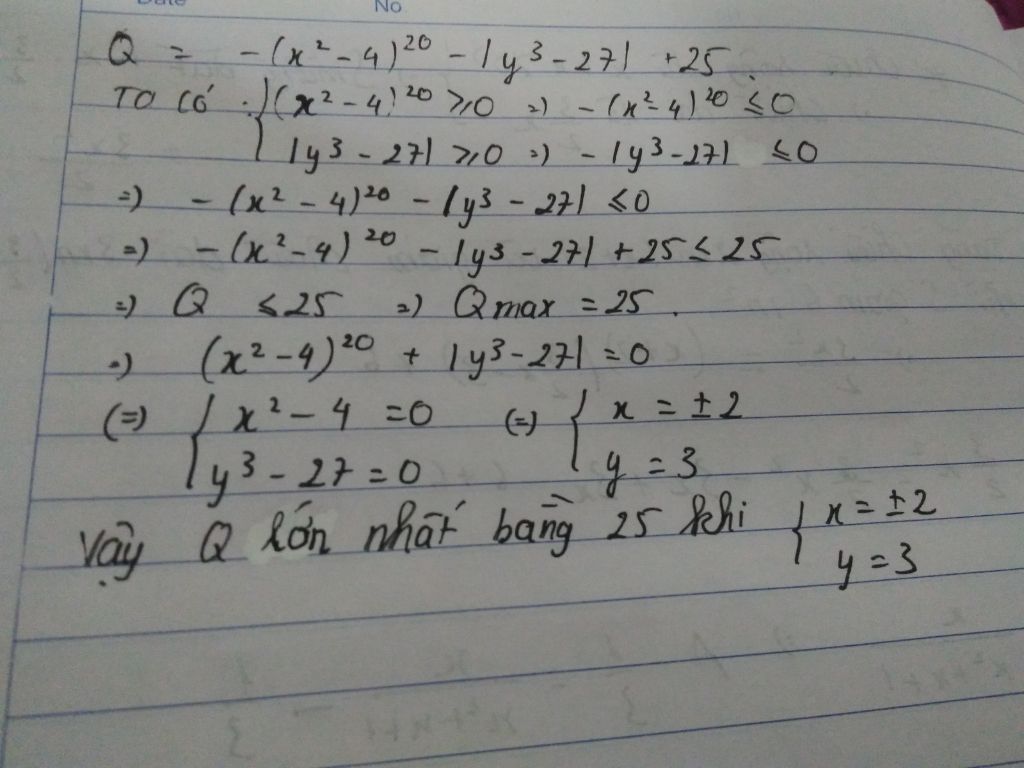 Date No
Q = -(x² - 4)²⁰ - |y³ - 27| + 25.
Ta có: { (x² - 4)²⁰ ≥ 0 => -(x² - 4)²⁰ ≤ 0
|y³ - 27| ≥ 0 => -|y³ - 27| ≤ 0
=> -(x² - 4)²⁰ - |y³ - 27| ≤ 0
=> -(x² - 4)²⁰ - |y³ - 27| + 25 ≤ 25
=> Q ≤ 25 => Qmax = 25.
=> (x² - 4)²⁰ + |y³ - 27| = 0
(=) { x² - 4 = 0 (=) { x = ±2
y³ - 27 = 0 y = 3
Vậy Q lớn nhất bằng 25 khi { x = ±2
y = 3